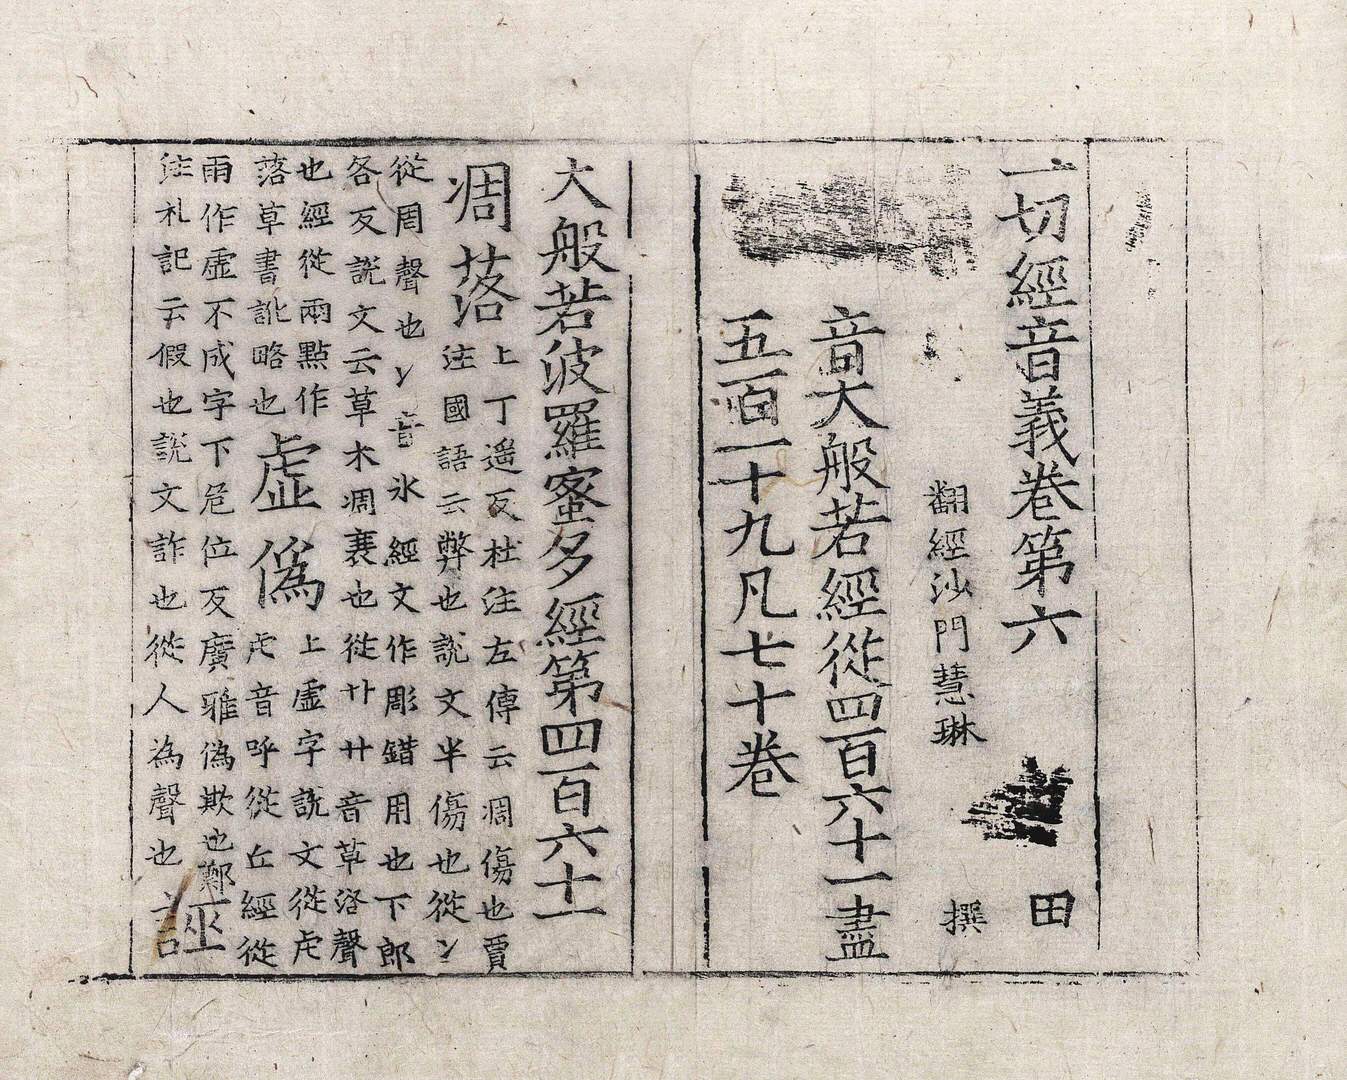 一切經音義卷第六 田
翻經沙門慧琳 撰
音大般若經從四百六十一盡
五百一十九凡七十卷
大般若波羅蜜多經第四百六十一
凋落
上丁遥反杜注左傳云凋傷也賈
注國語云弊也說文半傷也從冫
從周聲也冫音氷經文作彫錯用也下郎
各反說文云草木凋衰也從卄卄音草洛聲
也經從兩點作
落草書訛略也
虛偽
上虛字說文從虍
虍音呼從丘經從
雨作虛不成字下危位反廣雅偽欺也鄭
注札記云假也說文詐也從人為聲也
誣